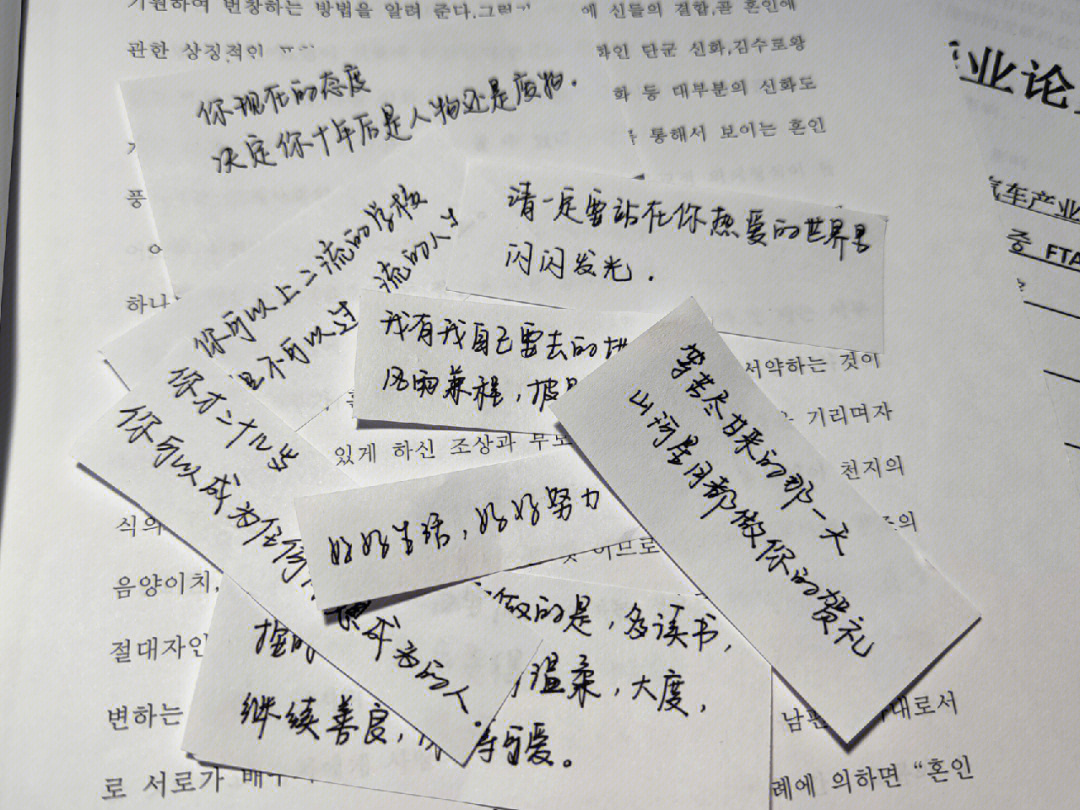 기원하여 번창하는 방법을 알려 준다.
에 신들의 결합,곧 혼인에
관한 상징적인
화인 단군 신화,김수로왕
화 등 대부분의 신화도
통해서 보이는 혼인
풍
하나
서약하는 것이
기리며자
있게 하신 조상과
천지의
식의
의
음양이치,
이므로
절대자인
변하는
대로서
로 서로가 배우
례에 의하면 “혼인
业论
汽车产业
中 FTA
你现在的态度
决定你十年后是人物还是废物.
请一定要站在你热爱的世界里
闪闪发光.
你可以上二流的学校
但不可以过 流的人生
我有我自己要去的地
风雨兼程,披星
你才二十几岁
你可以成为任何
想成为的人.
等苦尽甘来的那一天
山河星月都做你的贺礼
好好生活,好好努力
做的是,多读书,
温柔,大度,
继续善良, 可爱。